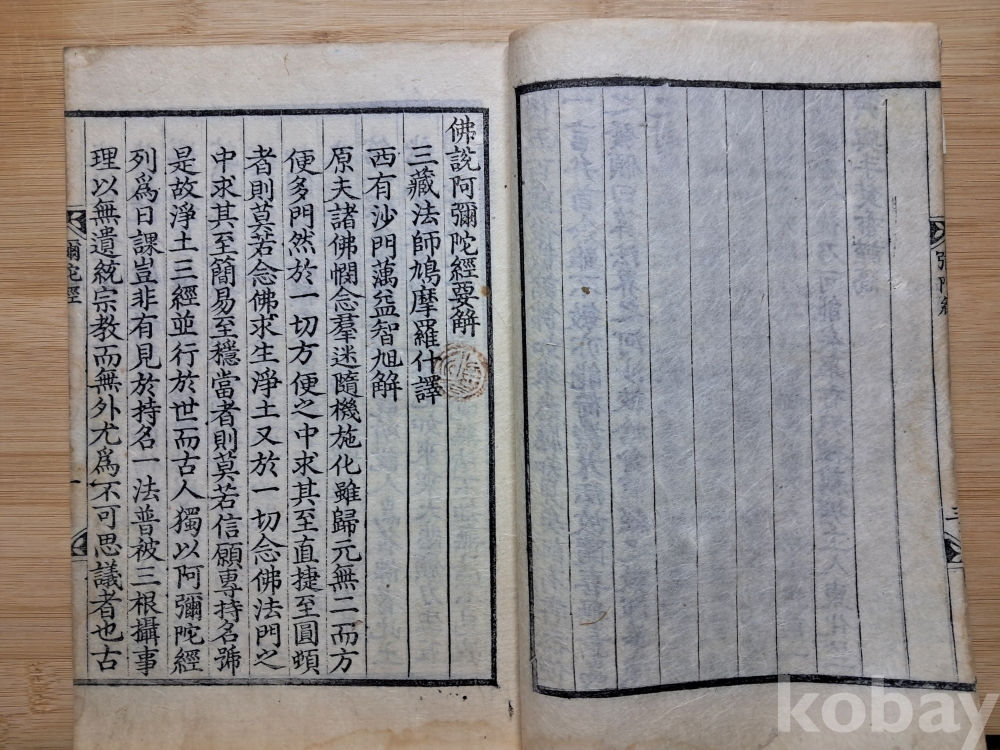 佛說阿彌陀經要解
三藏法師鳩摩羅什譯
西有沙門蕅益智旭解
原夫諸佛憫念羣迷隨機施化雖歸元無二而方
便多門然於一切方便之中求其至直捷至圓頓
者則莫若念佛求生淨土又於一切念佛法門之
中求其至簡易至穩當者則莫若信願專持名號
是故淨土三經並行於世而古人獨以阿彌陀經
列爲日課豈非有見於持名一法普被三根攝事
理以無遺統宗教而無外尤爲不可思議者也古
彌陀經
一
kobay